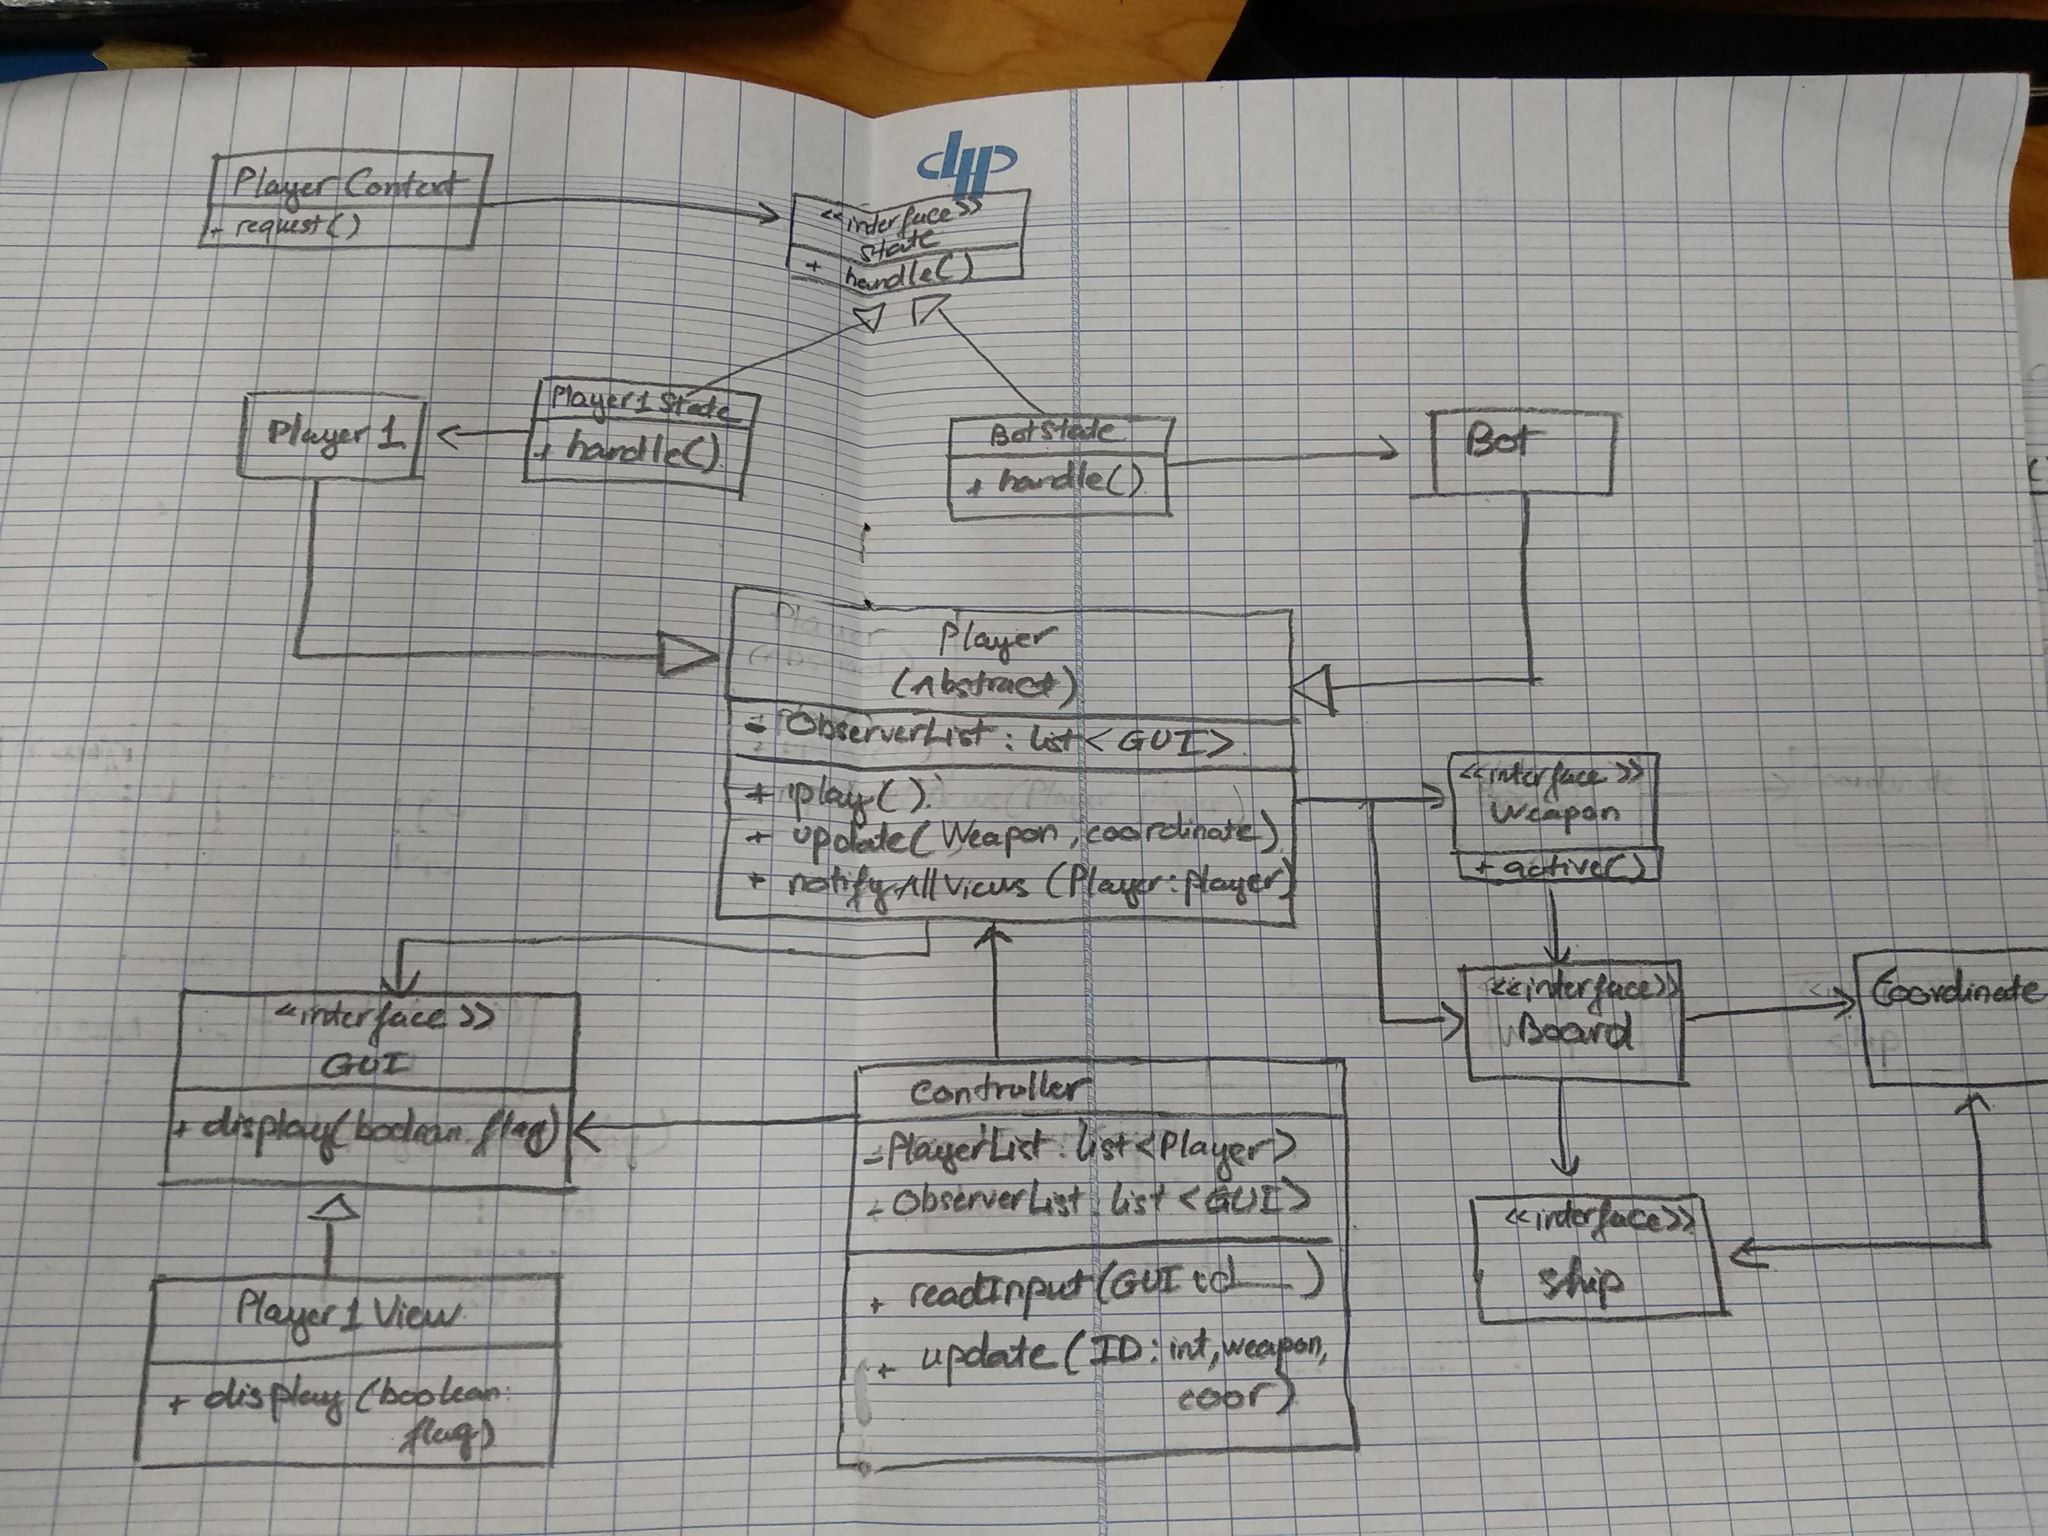 dyp
Player Context
+ request()
<<interface>>
State
+ handle()
Player 1
Player1 State
+ handle()
BotState
+ handle()
Bot
Player
(Abstract)
- ObserverList : list<GUI>
+ play()
+ update(Weapon, coordinate)
+ notifyAllViews (Player: player)
<<interface>>
Weapon
+ active()
<<interface>>
GUI
+ display(boolean flag)
<<interface>>
Board
Coordinate
Controller
- PlayerList : list<Player>
- ObserverList : list<GUI>
+ readInput(GUI )
+ update(ID: int, weapon,
coor)
<<interface>>
Ship
Player1 View
+ display(boolean:
flag)